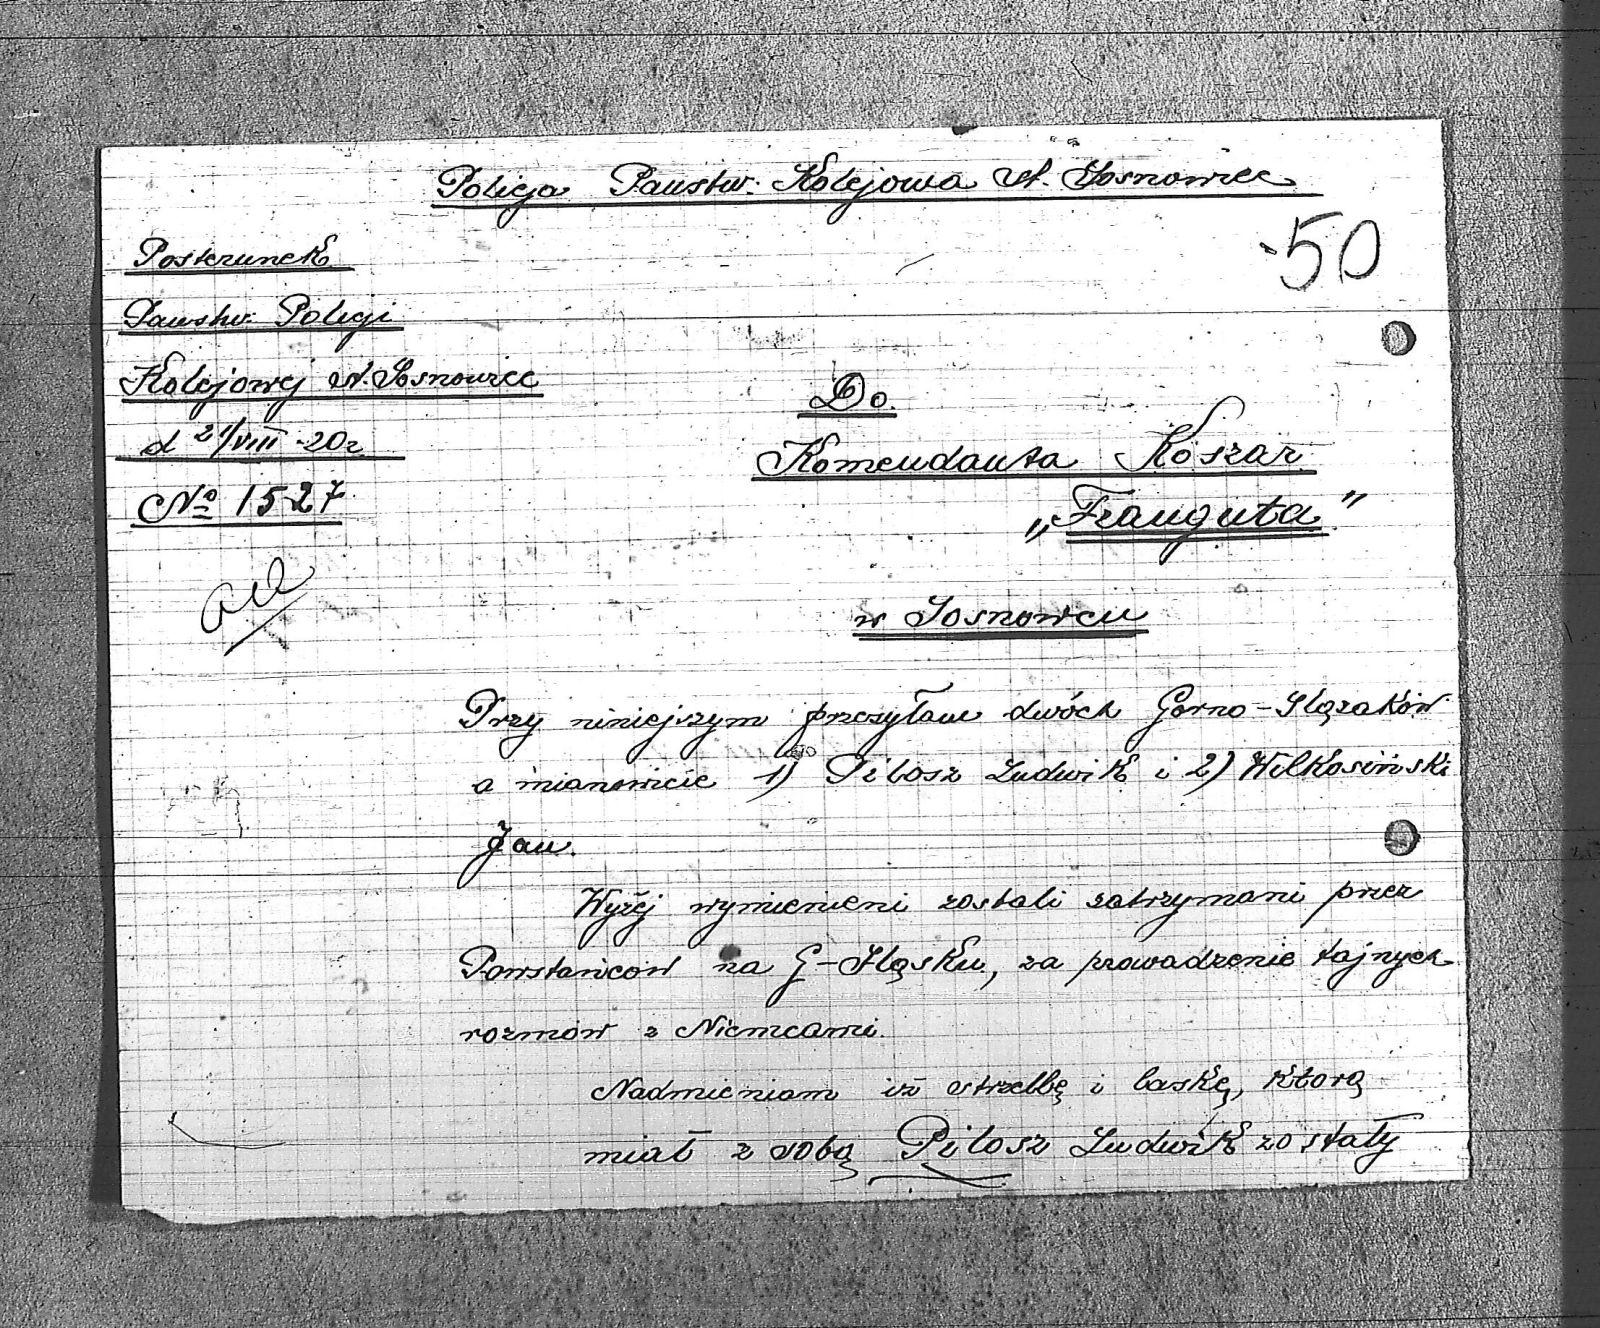 Policja Państw. Kolejowa st. Sosnowiec
50
Posterunek
Państw. Policji
Kolejowej st. Sosnowiec
d 21/VIII -20 r.
№ 1527
Do
Komendanta Koszar
„Trauguta"
w Sosnowcu
Przy niniejszym przesyłam dwóch Gorno-Slązaków
a mianowicie 1) Pilosz Ludwik i 2) Wilkosiński
Jan.
Wyżej wymienieni zostali zatrzymani przez
Powstańców na G-Sląsku, za prowadzenie tajnych
rozmów z Niemcami.
Nadmieniam iż strzelbę i laskę, którą
miał z sobą Pilosz Ludwik zostały